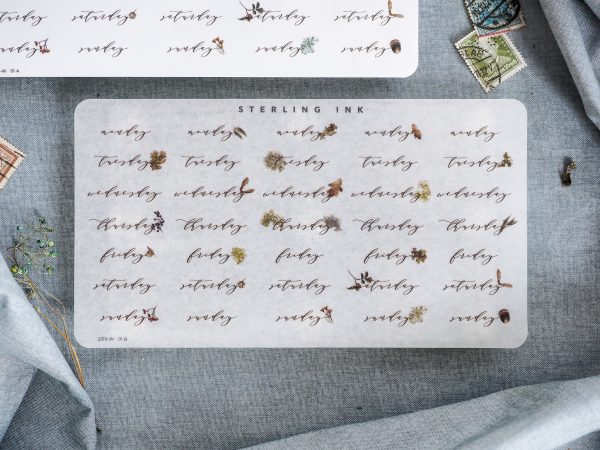 saturday saturday saturday saturday
sunday sunday sunday sunday sunday
-W 01A
STERLING INK
monday monday monday monday monday
tuesday tuesday tuesday tuesday tuesday
wednesday wednesday wednesday wednesday wednesday
thursday thursday thursday thursday thursday
friday friday friday friday friday
saturday saturday saturday saturday saturday
sunday sunday sunday sunday sunday
2310-W 01B